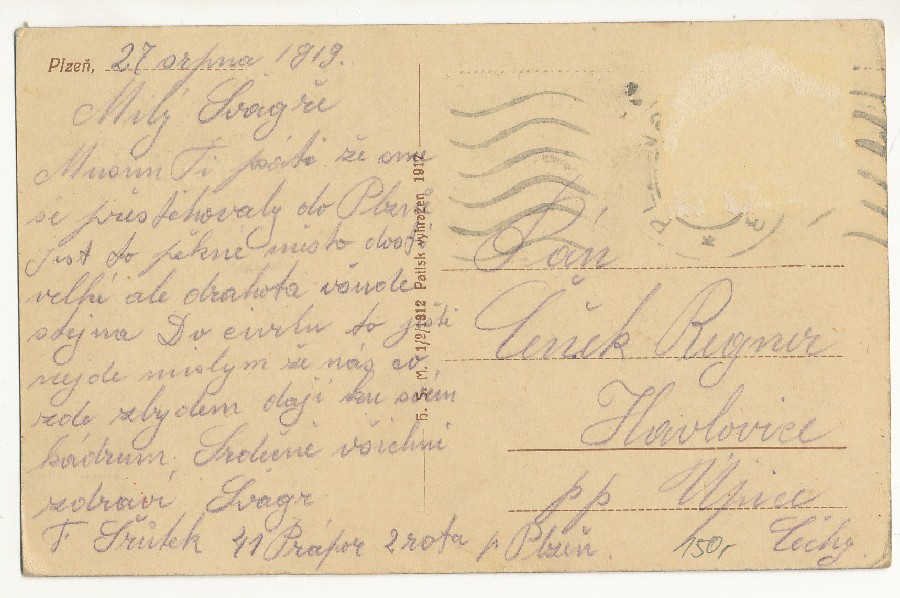 Plzeň, 27 srpna 1919.
Milý Švagře
Musim Ti psáti že sme
se přestěhovaly do Plzně
Jest to pěkné město dosti
velké ale drahota všude
stejna Do civilu to ješti
nejde mislym že nás co
zde zbydem dají ku svém
kádrum. Srdečně všichni
zdraví Švagr
F. Šrůtek 41 Prápor 2 rota p Plzeň.
6. S. M. 1/2/1912 Patisk vyhrazen 1917
Pán
Čeněk Regner
Havlovice
pp Úpice
150,-
Čechy